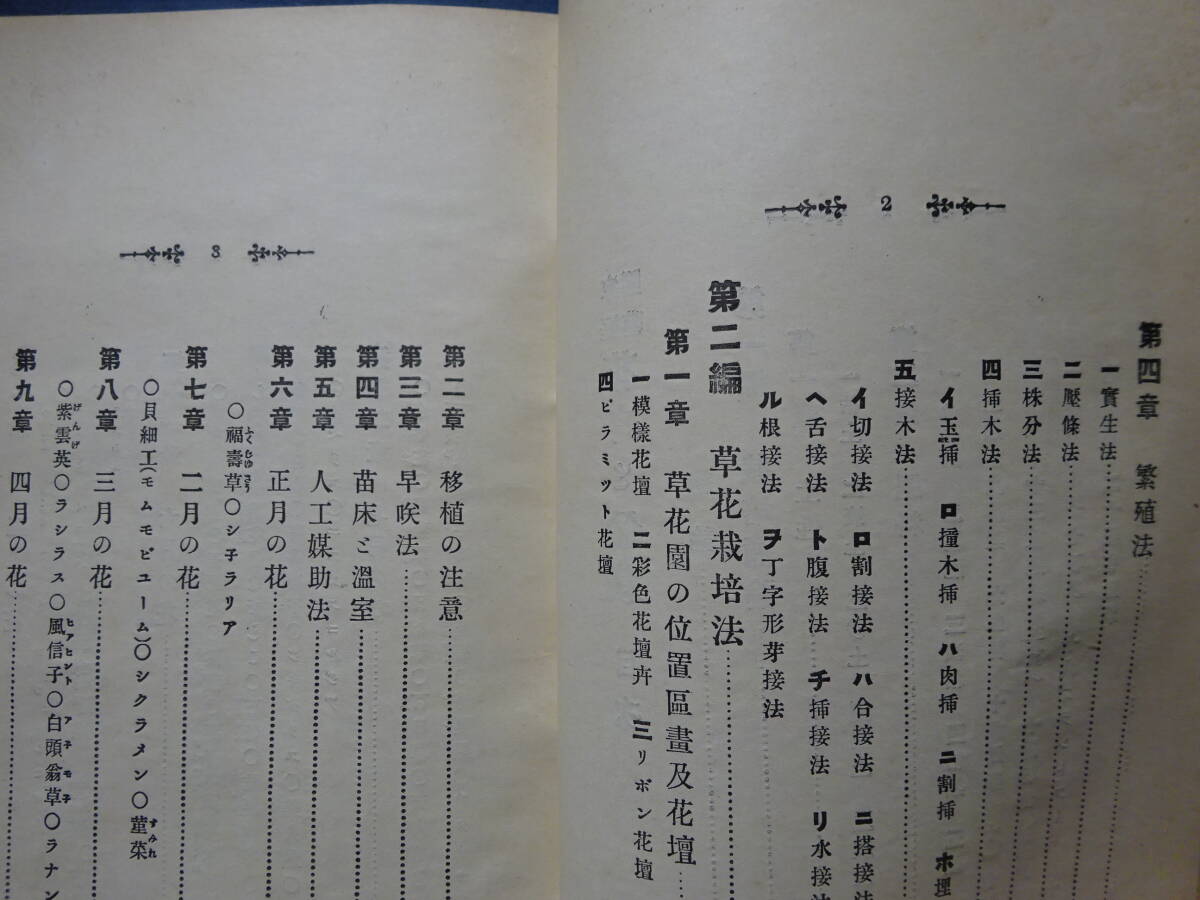 2
第四章 繁殖法
一實生法
二壓條法
三株分法
四揷木法
イ玉揷 ロ撞木揷 ハ肉揷 ニ割揷 ホ埋
五接木法
イ切接法 ロ割接法 ハ合接法 ニ搭接法
ヘ舌接法 ト腹接法 チ揷接法 リ水接
ル根接法 ヲ丁字形芽接法
第二編 草花栽培法
第一章 草花園の位置區畫及花壇
一模樣花壇 二彩色花壇卉 三リボン花壇
四ピラミット花壇
3
第二章 移植の注意
第三章 早咲法
第四章 苗床と溫室
第五章 人工媒助法
第六章 正月の花
○福壽草○シ子ラリア
第七章 二月の花
○貝細工(モムモビユーム)○シクラメン○菫菜
第八章 三月の花
○紫雲英○ラシラス○風信子○白頭翁草○ラナン
第九章 四月の花